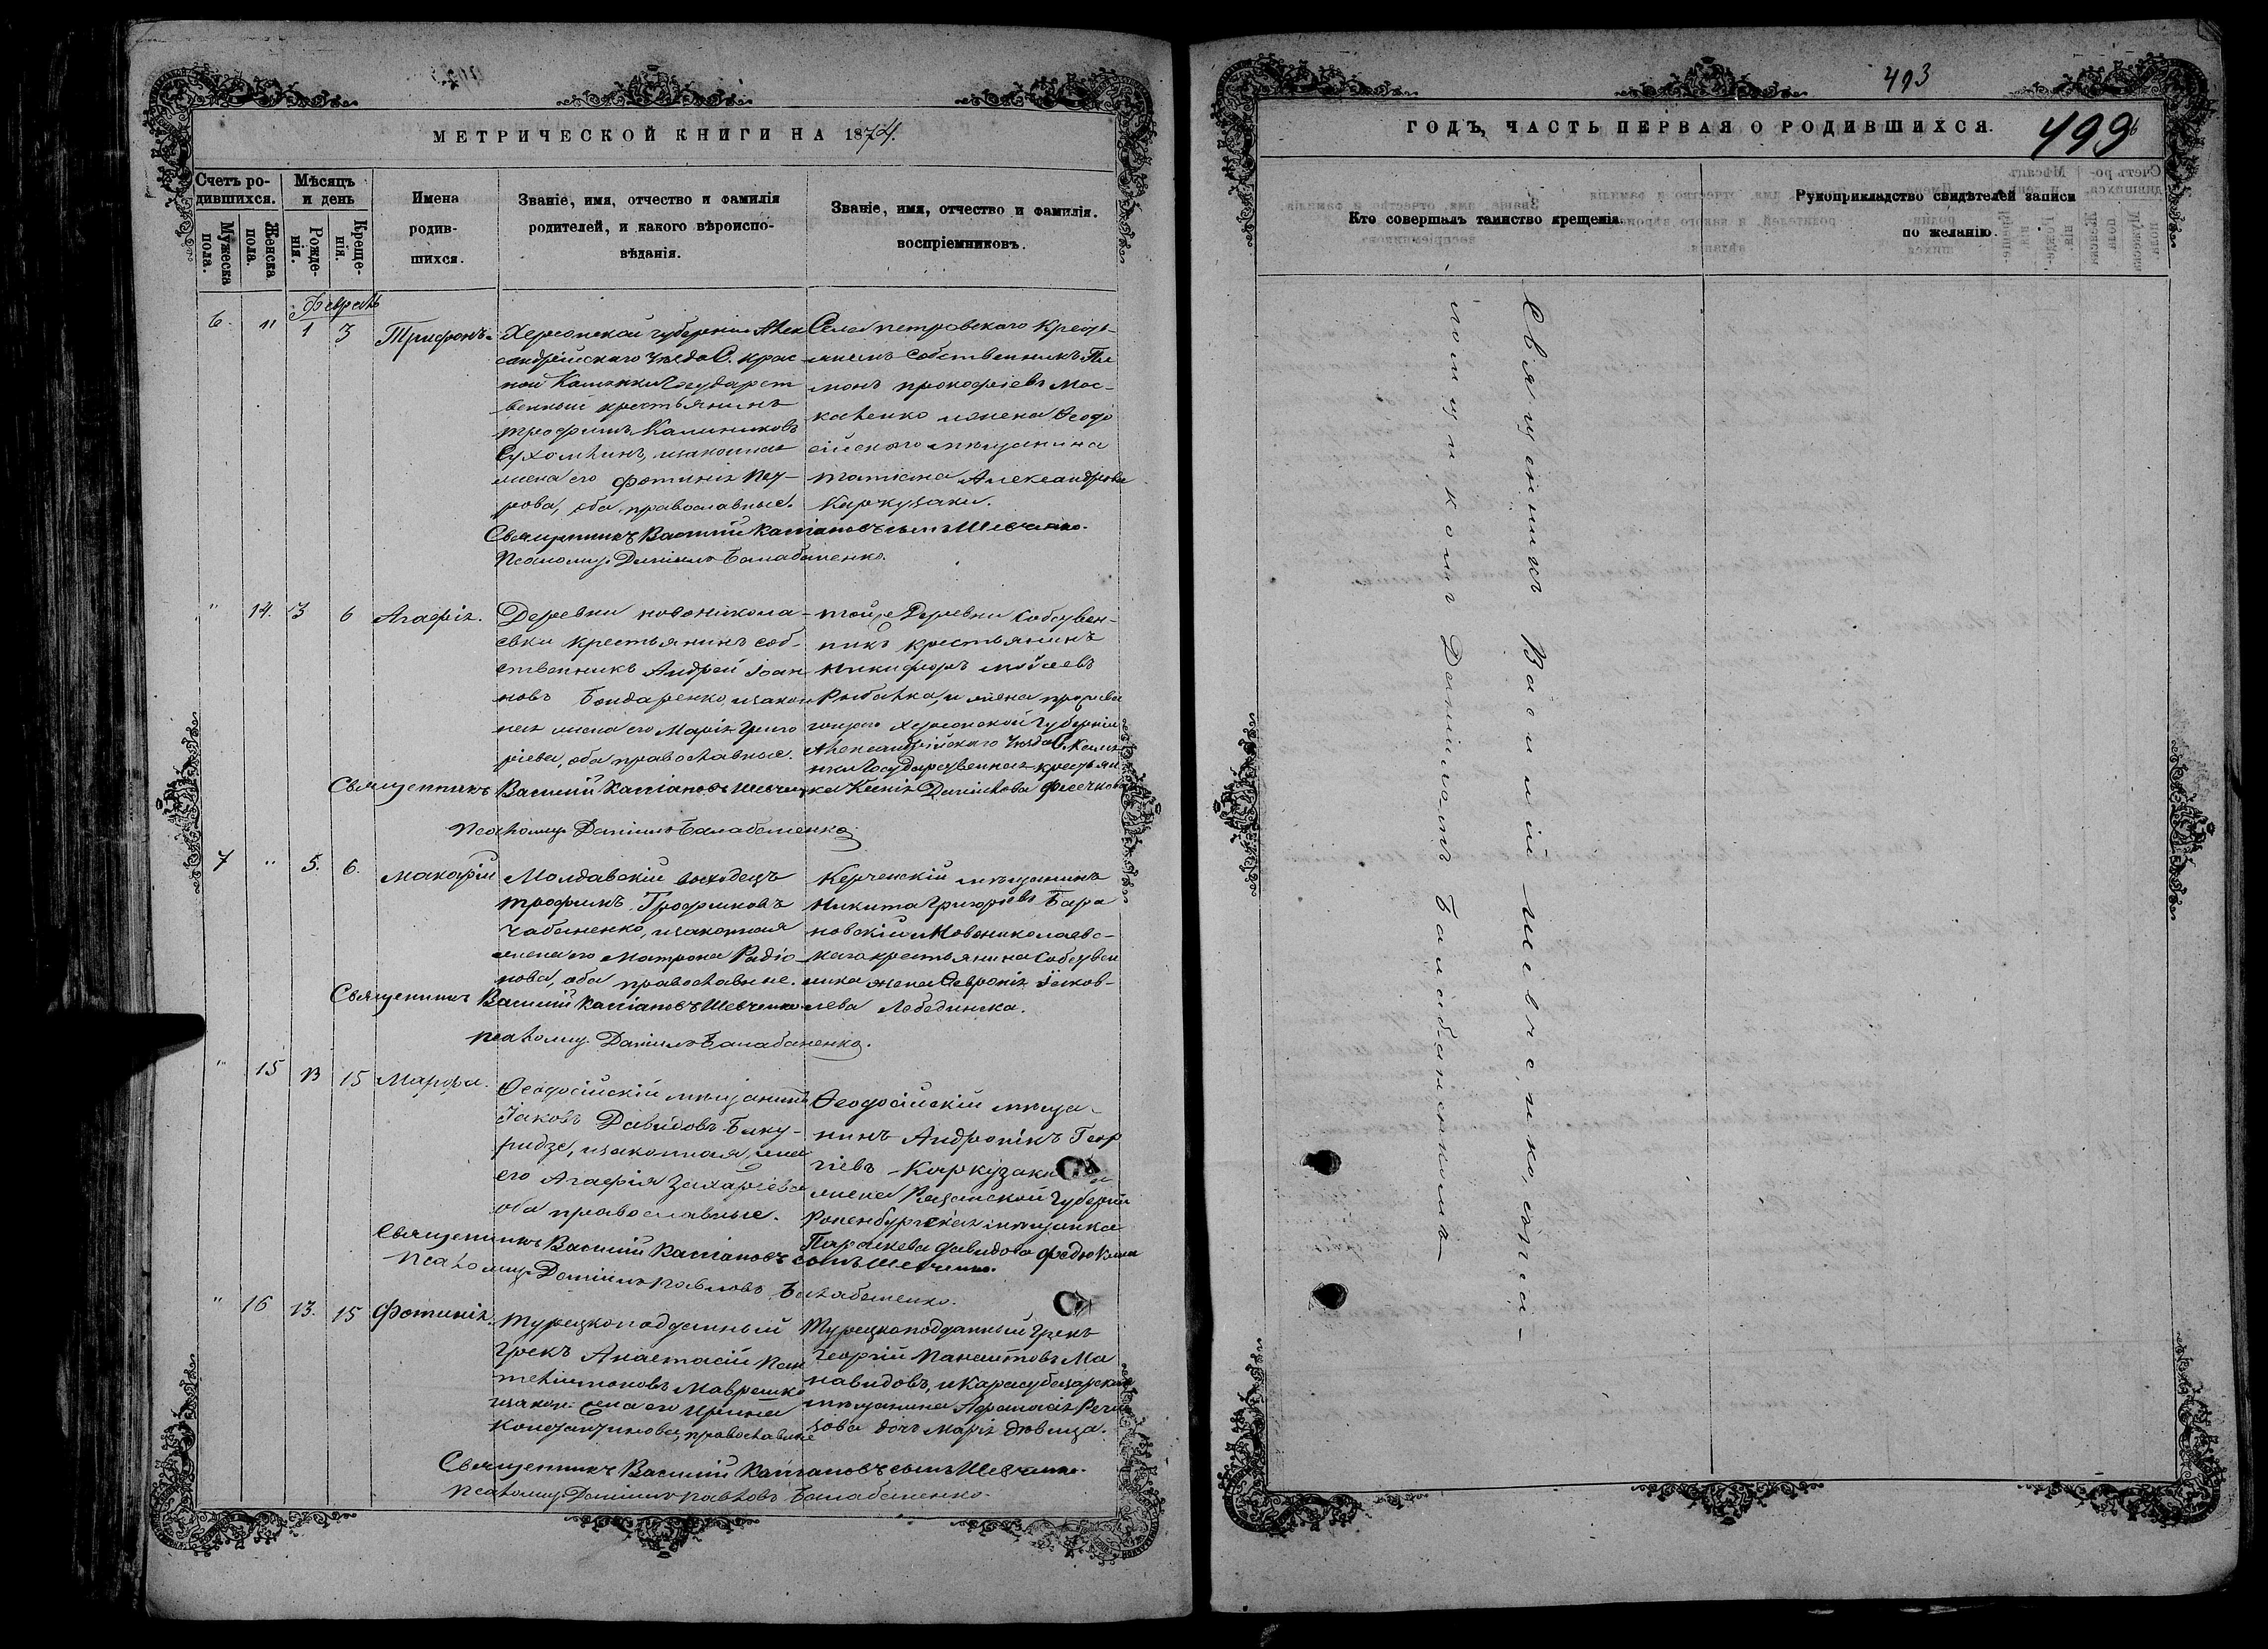 МЕТРИЧЕСКОЙ КНИГИ НА 1874
Счетъ ро-
дившихся.
Мѣсяцъ
и день
Мужеска
пола.
Женска
пола.
Рожде-
нія.
Креще-
нія.
Имена
родив-
шихся.
Званіе, имя, отчество и фамилія
родителей, и какого вѣроиспо-
вѣданія.
Званіе, имя, отчество и фамилія.
воспріемниковъ.
Февраль
6. " 1 3 Трифонъ.
Херсонской губерніи Алек
сандрійскаго уѣзда С. Крас
ной Каменки Государст
венный крестьянинъ
Трофимъ Калиниковъ
Сухомлинъ, изаконная
жена его Фотинія Пет-
рова, оба православные.
Села Петровскаго Кресть
янинъ Собственникъ
монъ Прокофіевъ Мос-
каленко ижена Ѳеодо
сійскаго мѣщанина
Татіана Александрова
Каркузаки.
Священникъ Василій Кассіановъ сынъ Шевченко.
Псаломщ. Даніилъ Балабаненко.
" 14. 3 6 Агафія.
Деревни новониколa-
евки крестьянинъ соб-
ственникъ Андрей Іоан
новъ Бондаренко, изакон
ная жена его Марія Григо
ріева, оба православные.
той же Деревни Собствен-
никъ крестьянинъ
Никифоръ Мойсеевъ
Рыбалка, и жена
Херсонской Губерніи
Александрійскаго уѣзда С. Камен
нки Государственная крестьян
ка Ксенія Данилова
Священникъ Василій Кассіановъ Шевченко
Псаломщ. Даніилъ Балабаненко
7 " 5. 6. Макарій
Молдавскій выходецъ
Трофимъ Трофимовъ
Чабаненко, изаконная
жена его Матрона Радіо-
нова, оба православные.
Керченскій мѣщанинъ
Никита Григоріевъ Бара
новскій и Новониколаевс-
каго крестьянина Собствен
ника жена Февронія Іаков-
лева Лебединска.
Священникъ Василій Кассіановъ Шевченко
Псаломщ. Даніилъ Балабаненко.
" 15 13 15 Марфа.
Ѳеодосійскій мѣщанинъ
Іаковъ Давидовъ Баку-
ридзе, изаконная жена
его Агафія Захаріева
оба православные.
Ѳеодосійскій мѣща-
нинъ Андроникъ Геор
гіевъ Каркузаки и
жена Рязанской Губерніи
Раненбургская мѣщанка
Параскева Давидова Федюкина
Священникъ Василій Кассіановъ сынъ Шевченко.
Псаломщ. Даніилъ Павловъ Балабаненко.
" 16 13. 15 Фотинія.
Турецкоподданный
Грекъ Анастасій Пан
телимоновъ
изакон. жена его Ирина
Константинова, православные
Турецкоподданный Грекъ
Георгій Панаитовъ Ма
навидовъ, и Карасубазарскаго
мѣщанина Афанасія
дочь Марія дѣвица.
Священникъ Василій Кассіановъ сынъ Шевченко.
Псаломщ. Даніилъ Павловъ Балабаненко.
493
ГОДЪ, ЧАСТЬ ПЕРВАЯ О РОДИВШИХСЯ.
499
Кто совершалъ таинство крещенія.
Рукоприкладство свидѣтелей записи
по желанію.
Священникъ Василій Шевченко, спса-
ломщикомъ Даніиломъ Балабаненкомъ